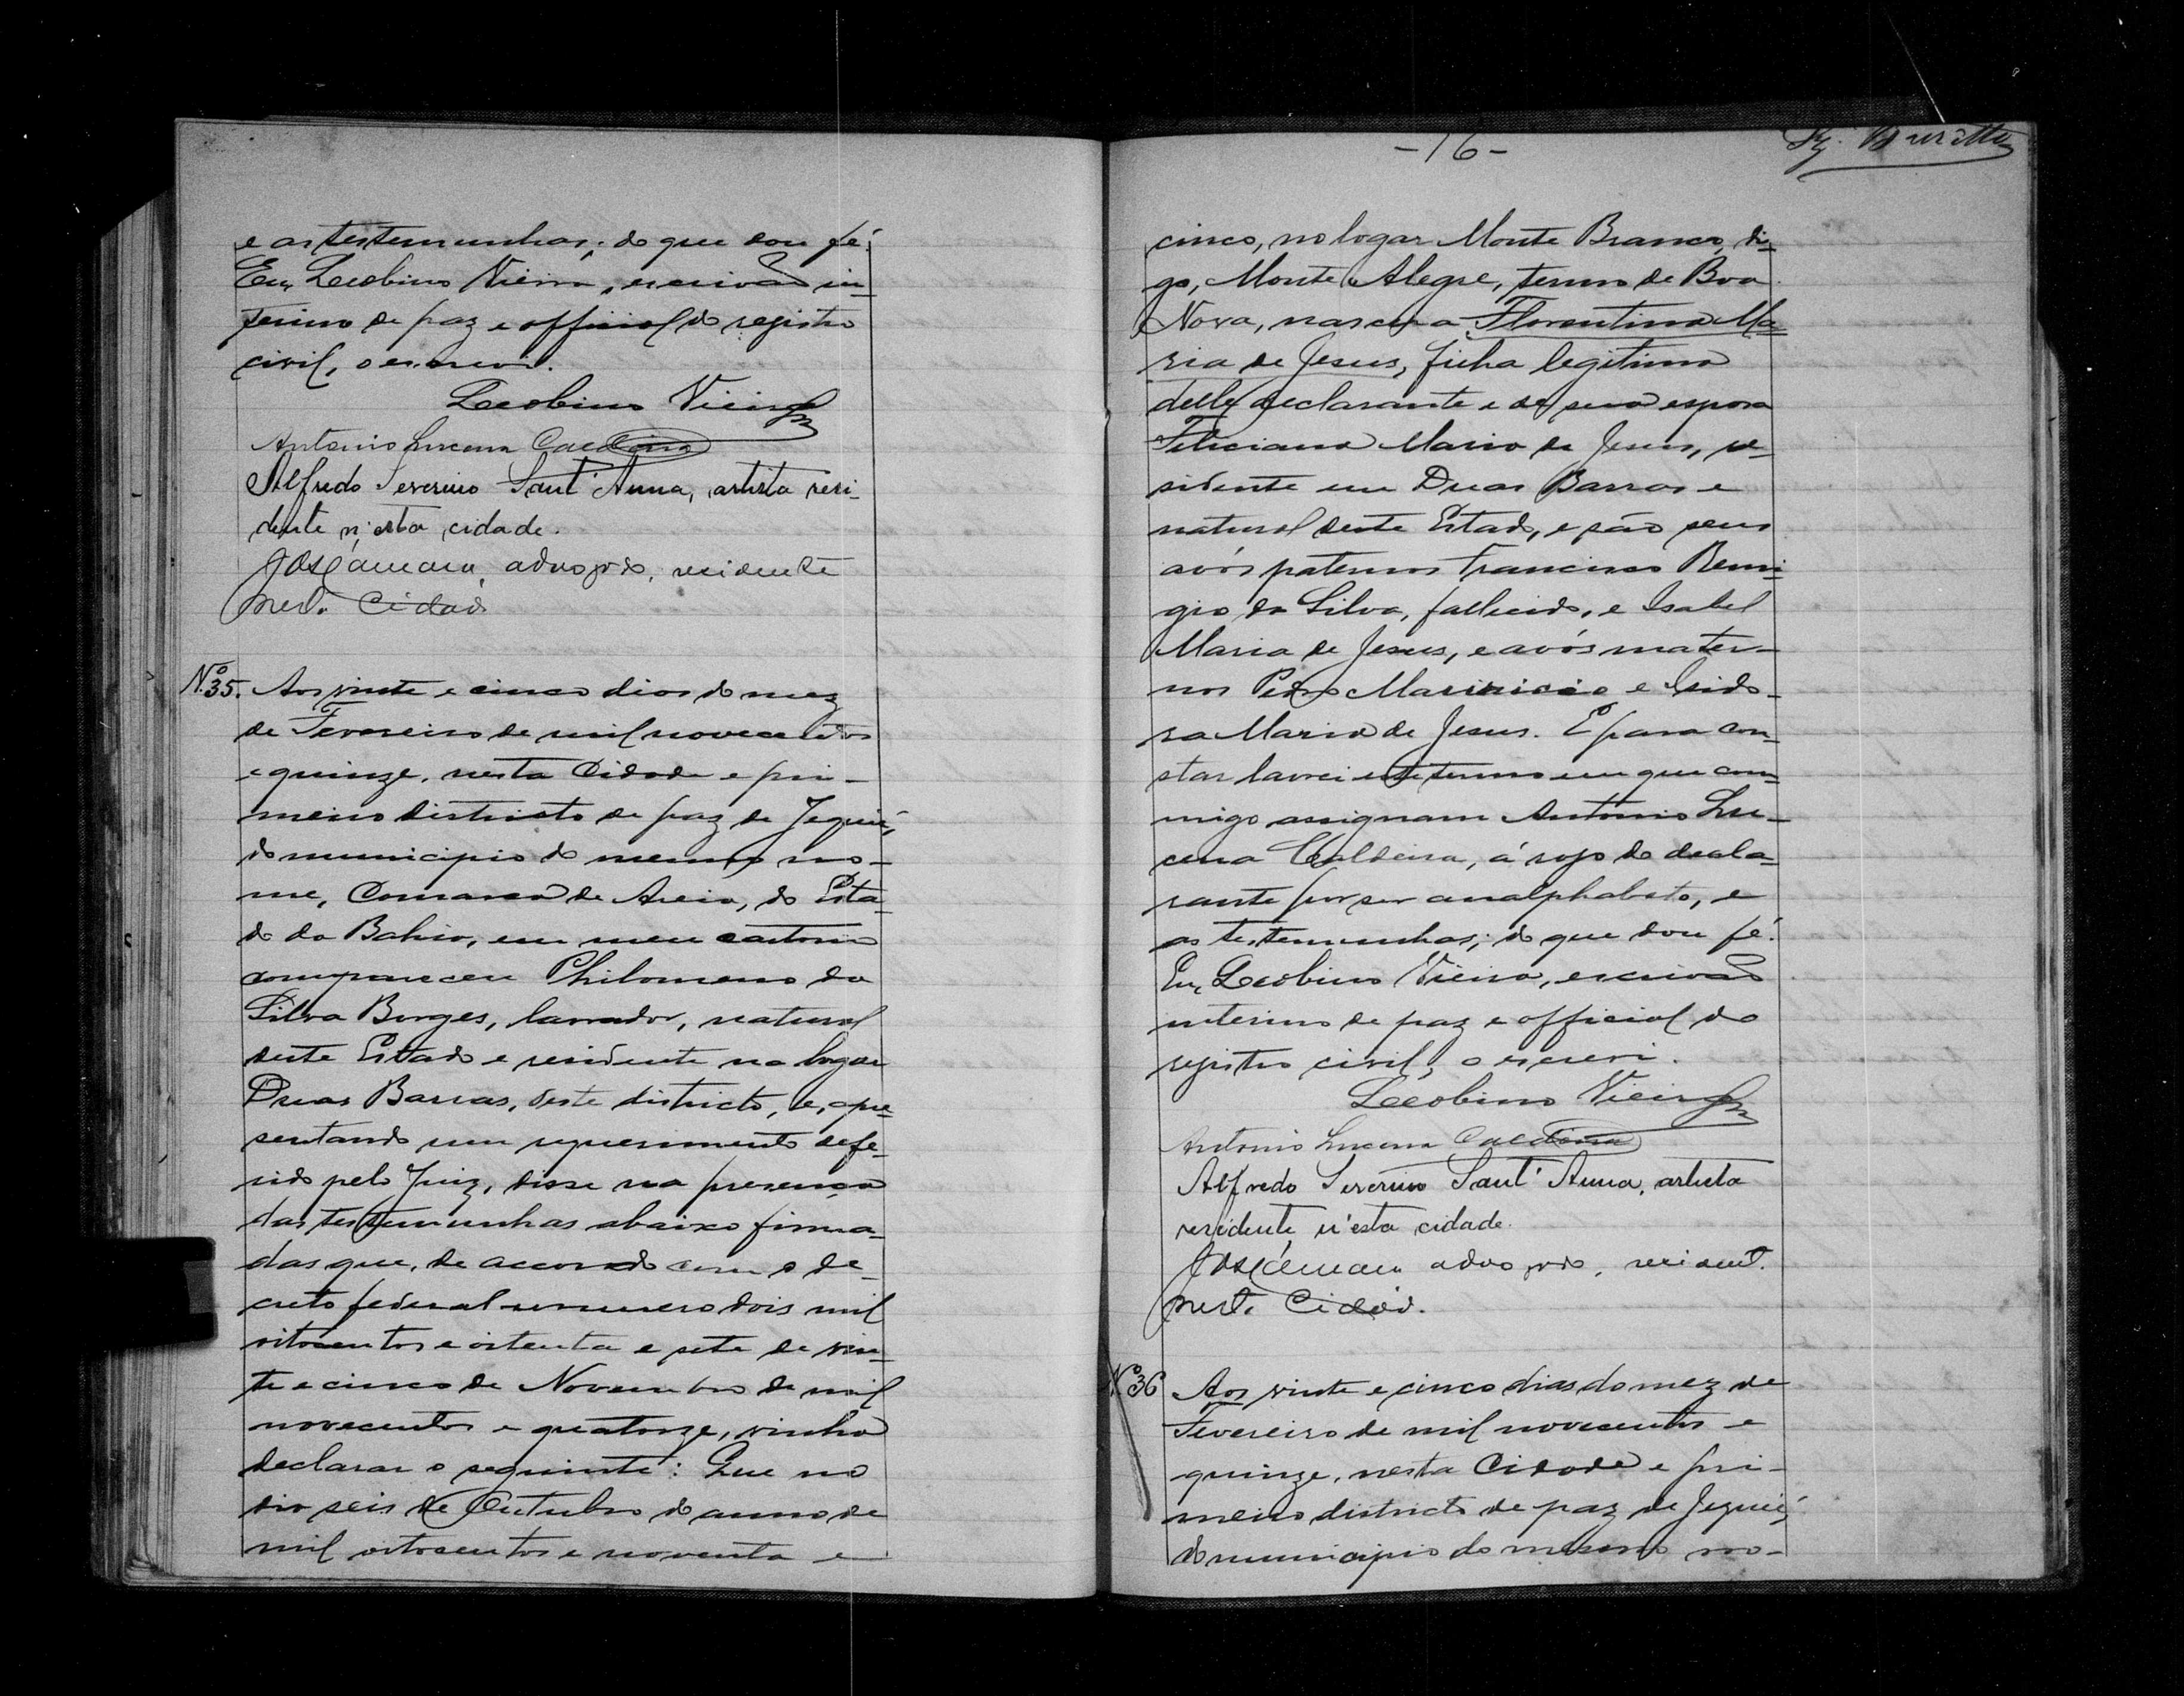 e as testemunhas; do que dou fé.
Eu, Leobino Vieira, escrivão in-
terino de paz e official do registro
civil, o escrevi.
Leobino Vieira
Antonio Lucena Caldeira
Alfredo Severino Sant'Anna, artista resi-
dente n'esta cidade.
advogado, residente
nest. Cidade
Nº 35. Aos vinte e cinco dias do mez
de Fevereiro de mil novecentos
e quinze, nesta Cidade e pri-
meiro districto de paz de Jequié,
do municipio do mesmo no-
me, Comarca de Areia, do Esta-
do da Bahia, em meu cartorio
compareceu Philomeno da
Silva Borges, lavrador, natural
deste Estado e residente no logar
Duas Barras, deste districto, e, apre-
sentando um requerimento defe-
rido pelo Juiz, disse na presença
das testemunhas abaixo firma-
das que, de accordo com o de-
creto federal numero dois mil
oitocentos e oitenta e sete de vin-
te e cinco de Novembro de mil
novecentos e quatorze, vinha
declarar o seguinte: Que no
dia seis de Outubro do anno de
mil oitocentos e noventa e
-16-
cinco, no logar Monte Branco, di-
go, Monte Alegre, termo de Boa
Nova, nasceu a Florentina Ma-
ria de Jesus, filha legitima
delle declarante e de sua esposa
Feliciana Maria de Jesus, re-
sidente em Duas Barras e
natural deste Estado, e são seus
avós paternos Francisco Remi-
gio da Silva, fallecido, e Isabel
Maria de Jesus, e avós mater-
nos Pedro e Isido-
ra Maria de Jesus. E para con-
star lavrei este termo em que com-
migo assignam Antonio Lu-
cena Caldeira, á rogo do decla-
rante por ser analphabeto, e
as testemunhas; do que dou fé.
Eu, Leobino Vieira, escrivão
interino de paz e official do
registro civil, o escrevi.
Leobino Vieira
Antonio Lucena Caldeira
Alfredo Severino Sant'Anna, artista
residente n'esta cidade.
advogado, resident.
nest. Cidad.
Nº 36 Aos vinte e cinco dias do mez de
Fevereiro de mil novecentos e
quinze, nesta Cidade e pri-
meiro districto de paz de Jequié,
do municipio do mesmo no-